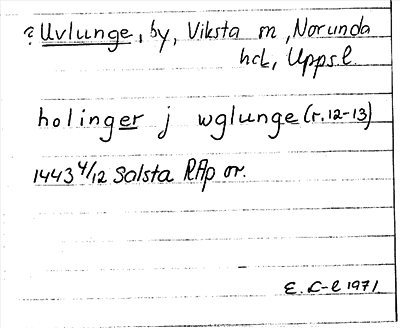 ? Uvlunge, by, Viksta sn, Norunda
hd, Upps.l
holinger j wglunge (r. 12-13)
1443 4/12 Salsta RAp or.
E. C-l 1971